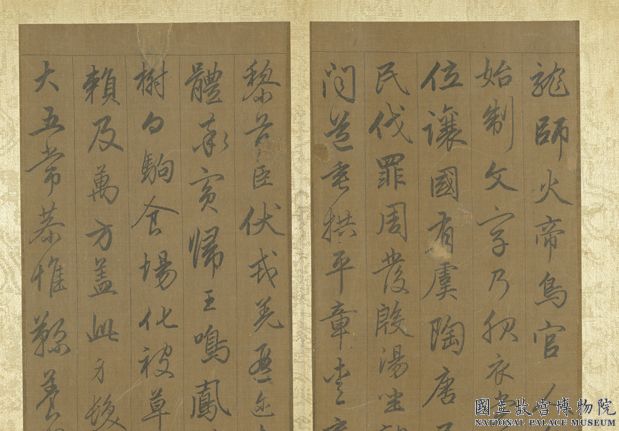 龍師火帝鳥官人
始制文字乃服衣
位讓國有虞陶唐
民伐罪周發殷湯坐
問道垂拱平章愛
黎首臣伏戎羌遐邇
體率賓歸王鳴鳳
樹白駒食場化被草
賴及萬方蓋此身髮
大五常恭惟鞠養
國立故宮博物院
NATIONAL PALACE MUSEUM